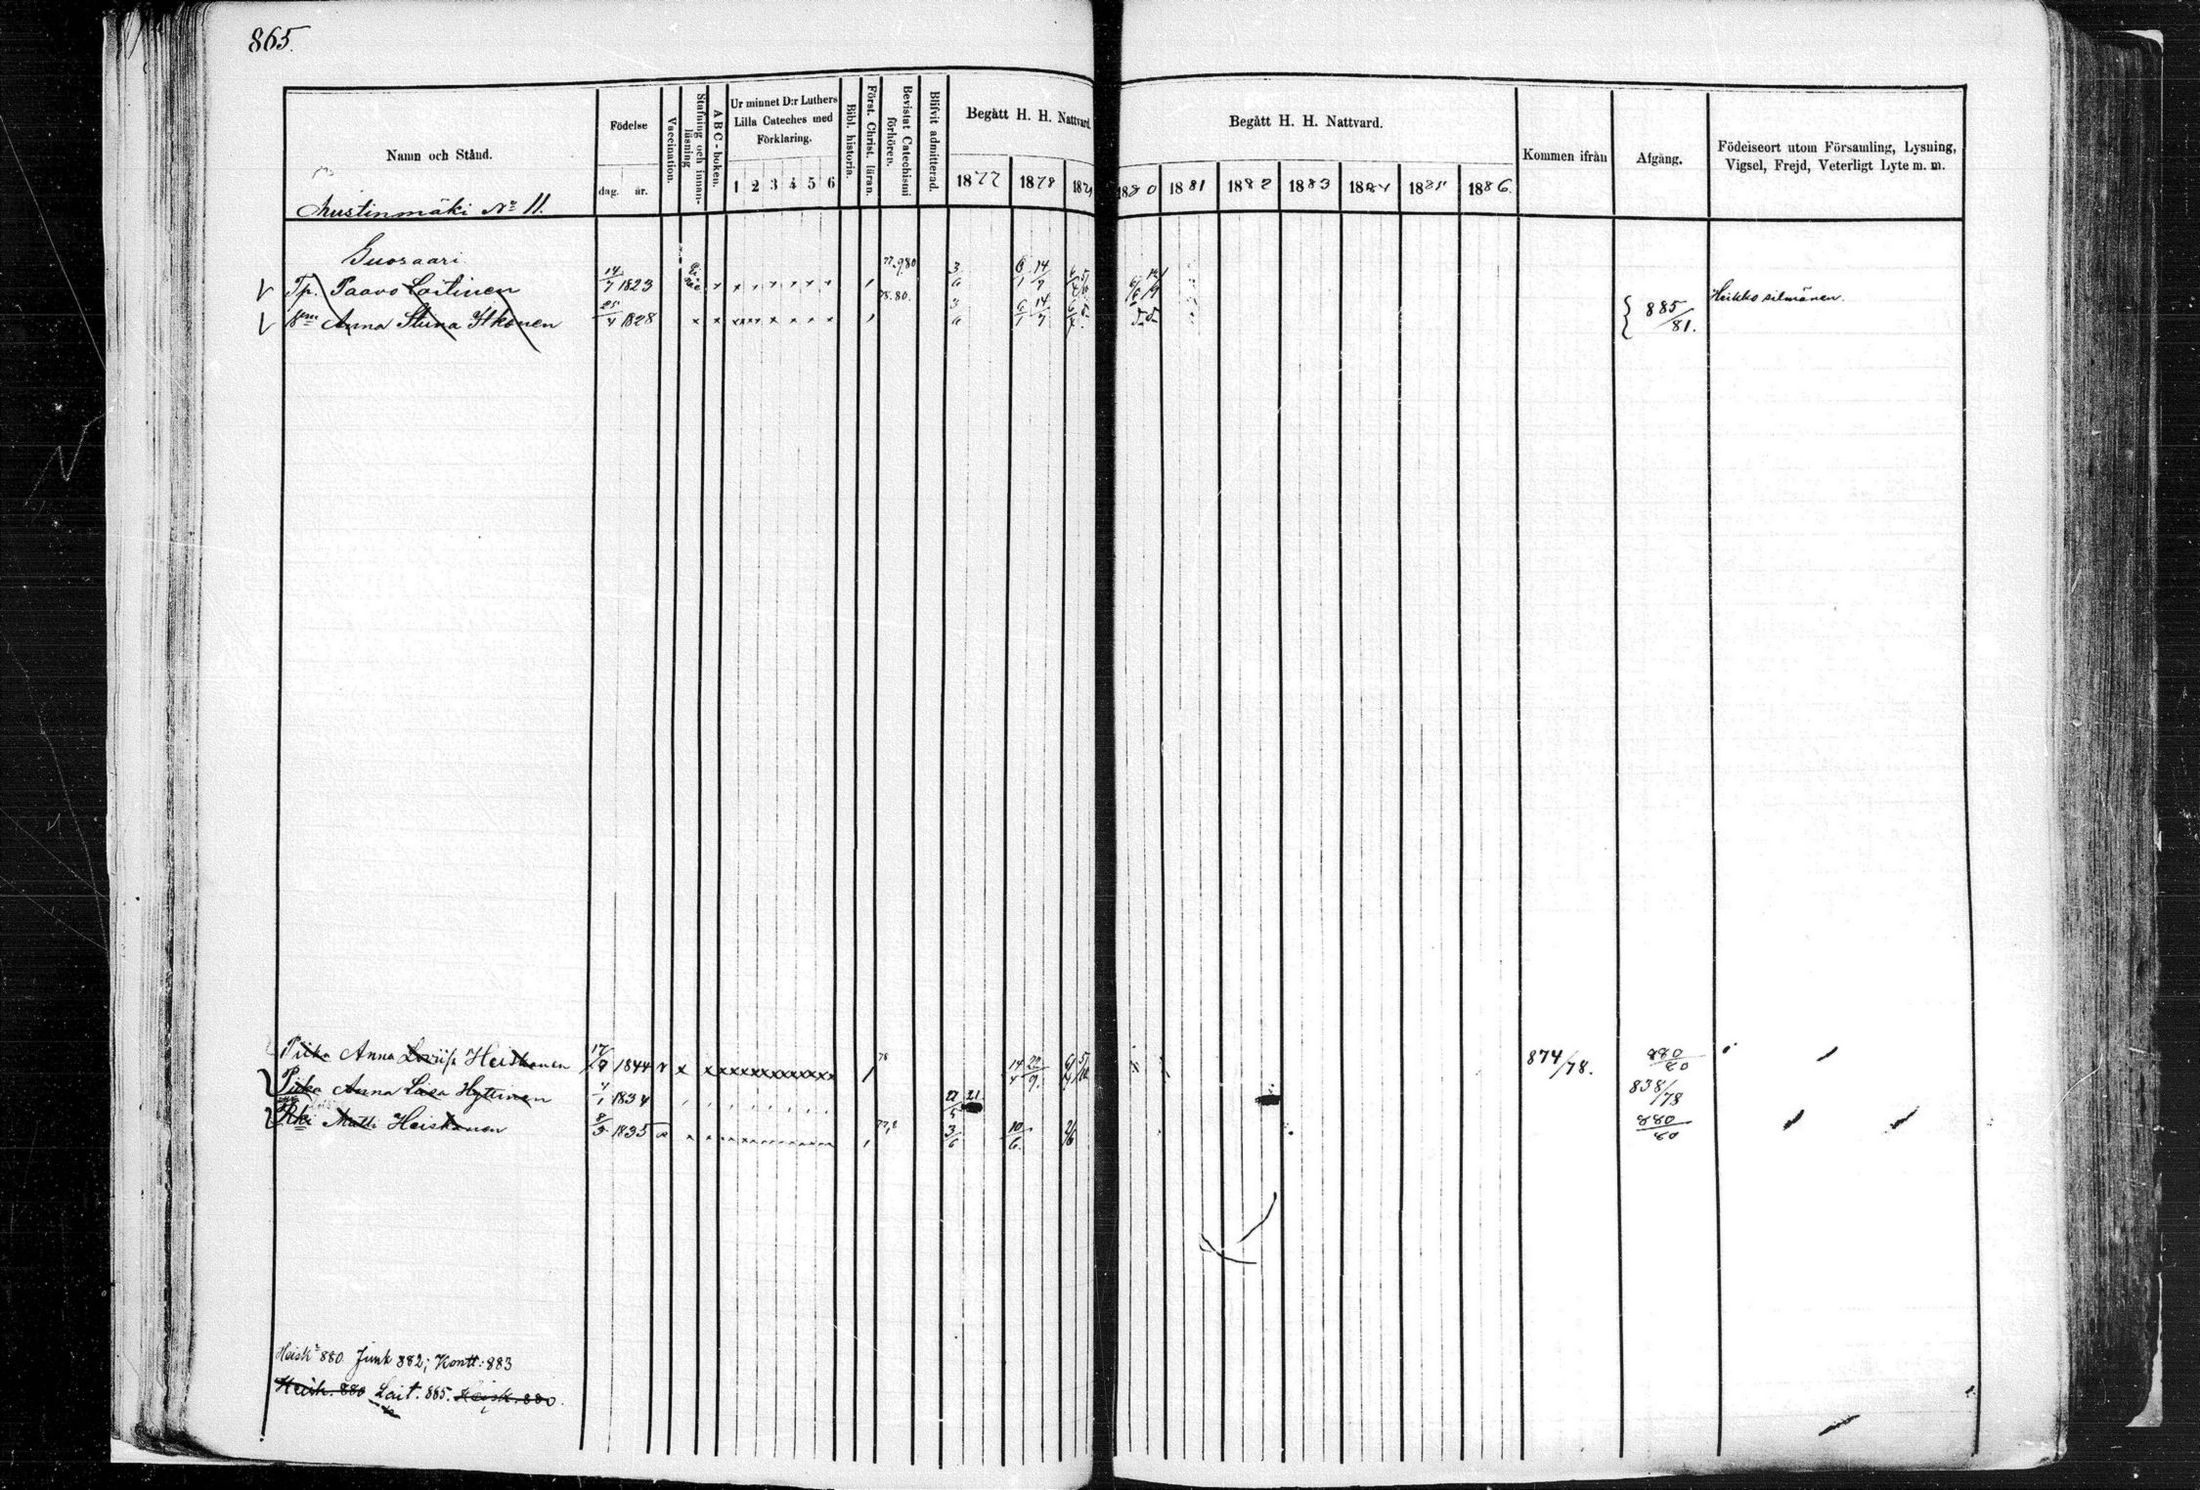 865.
Namn och Stånd.
Födelse
dag. år.
Vaccination.
Stafning och innanläsning
ABC-boken.
Ur minnet D:r Luthers
Lilla Cateches med
Förklaring.
1 2 3 4 5 6
Bibl. historia.
Först. Christ. läran.
Bevistat Catechismi förhören.
Blifvit admitterad.
Begått H. H. Nattvard.
1877 1878 187
Begått H. H. Nattvard.
1880 1881 1882 1883 1884 1885 1886.
Kommen ifrån
Afgång.
Födelseort utom Församling, Lysning,
Vigsel, Frejd, Veterligt Lyte m. m.
Mustinmäki No 11.
Suosaari
Tp. Paavo Laitinen 14/7 1823 77.9.80 3/6 6/1 14/7
Heikko silmänen.
Anna Stiina Itkonen 25/4 1828 78.80. 3/6 6/1 14/7 885/81.
Piika Anna Loviisa Heiskanen 17/9 1844 78 14/4 22/9. 874/78. 880/80
Piika Anna Liisa Hyttinen 4/1 1834 838/78
Rki Matti Heiskanen 8/3 1835 3/6 10/6. 880/80
Heisk. 880 Junk 882; Kontt: 883
Heisk. 880 Lait. 885. Heisk. 880.